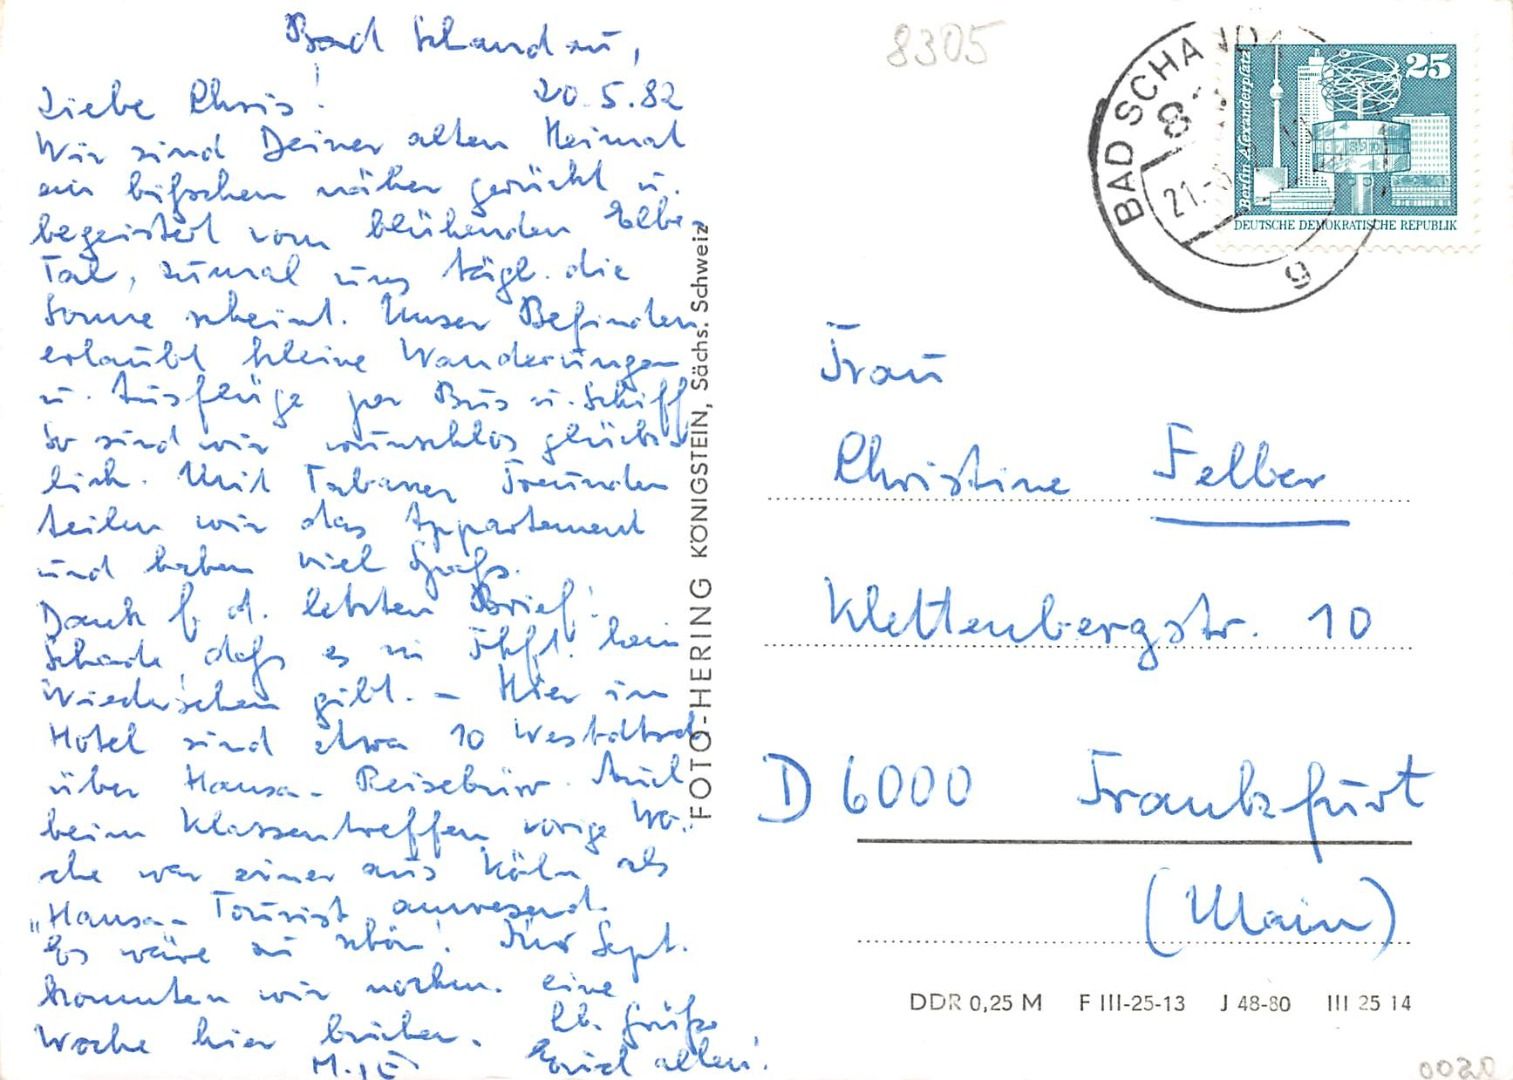 Bad Schandau,
20.5.82
Liebe Chris!
Wir sind Deiner alten Heimat
ein bißchen näher gerückt u.
begeistert vom blühenden Elbe-
Tal, zumal uns tägl. die
Sonne scheint. Unser Befinden
erlaubt kleine Wanderungen
u. Ausflüge per Bus u. Schiff.
So sind wir wunschlos glück-
lich. Mit Freunden
teilen wir das Appartement
und haben viel Spaß.
Dank f. d. letzten Brief!
Schade daß es in Fkft. kein
Wiedersehen gibt. – Hier im
Hotel sind etwa 10 Westdtsch
über Hansa-Reisebüro. Auch
beim Klassentreffen vorige Wo-
che war einer aus Köln als
"Hansa-Tourist anwesend.
Es wäre zu schön! Für Sept.
konnten wir nochm. eine
Woche hier buchen.
Lb. Grüße
Euch allen!
FOTO-HERING KÖNIGSTEIN, Sächs. Schweiz
8305
BAD SCHAND
21.
g
Berlin, Alexanderplatz
25
DEUTSCHE DEMOKRATISCHE REPUBLIK
Frau
Christine Felber
Klettenbergstr. 10
D 6000 Frankfurt
(Main)
DDR 0,25 M F III-25-13 J 48-80 III 25 14
0020